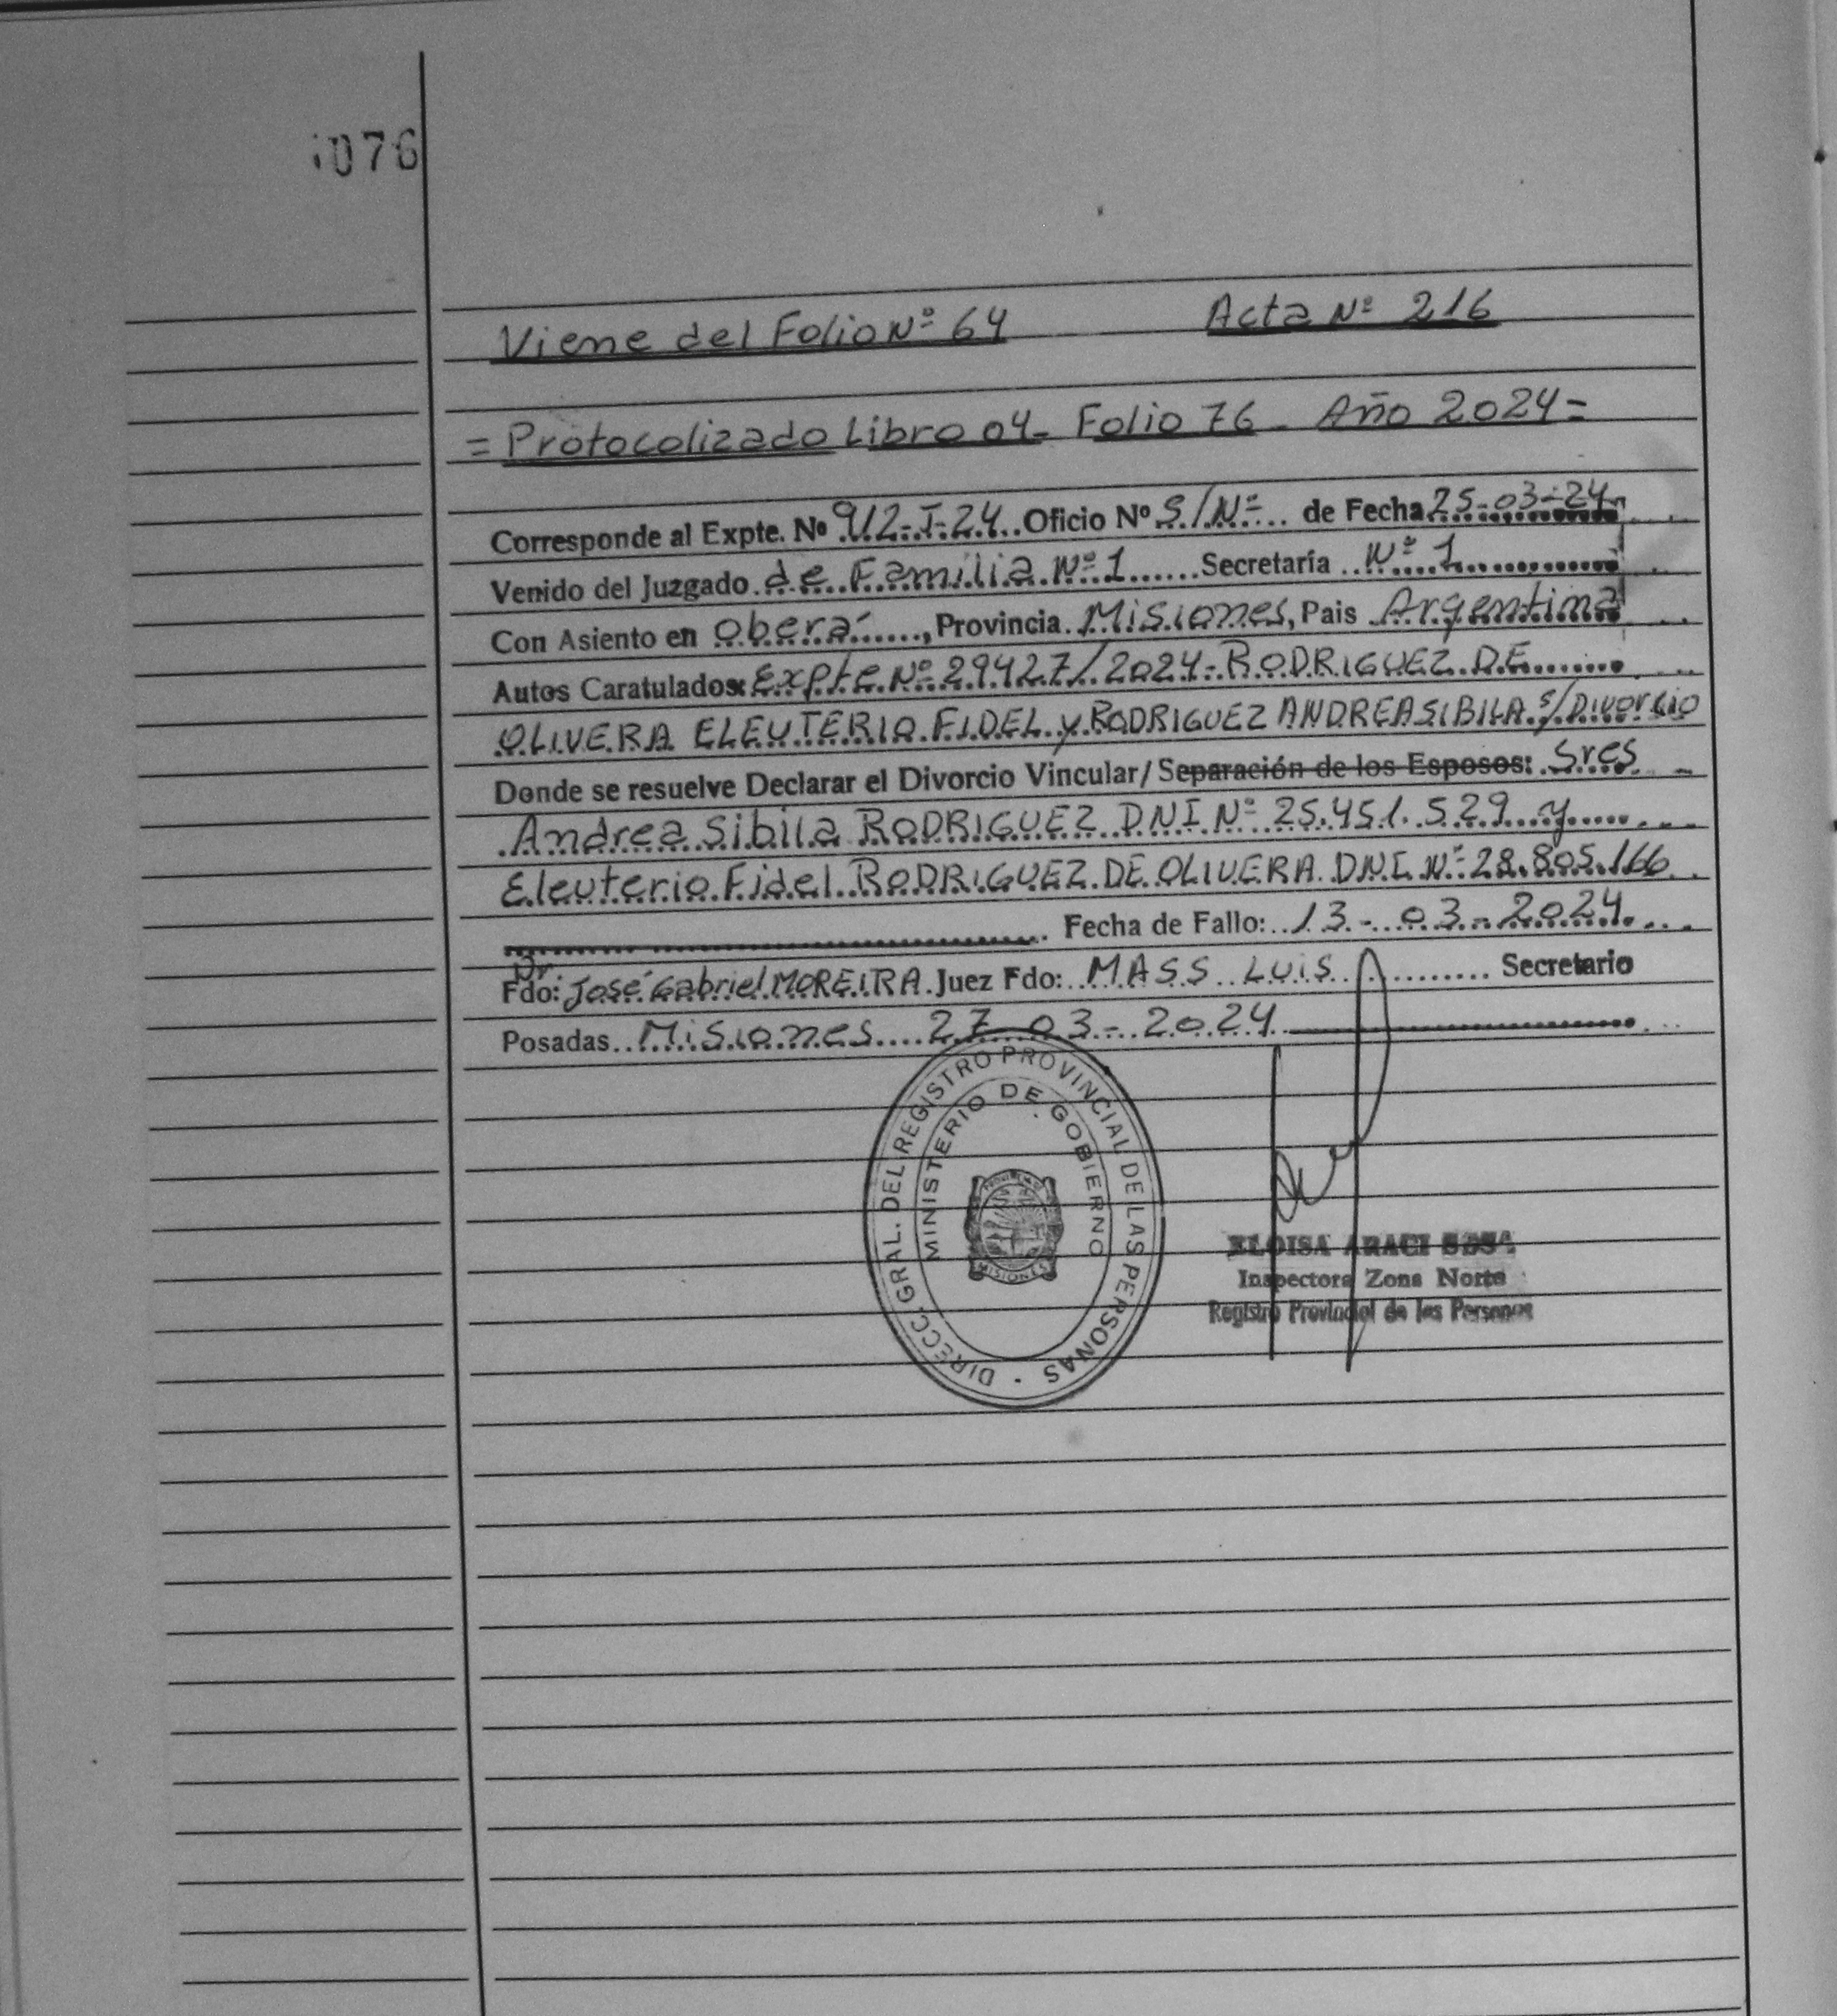 076
Viene del Folio Nº 64 Acta Nº 216
= Protocolizado Libro 04- Folio 76 - Año 2024=
Corresponde al Expte. Nº 912-I-24 Oficio Nº S/Nº de Fecha 25-03-24
Venido del Juzgado de Familia Nº 1 Secretaría Nº 1
Con Asiento en oberá, Provincia Misiones, Pais Argentina
Autos Caratulados: Expte Nº 29427/2024- RODRIGUEZ DE
OLIVERA ELEUTERIO FIDEL y RODRIGUEZ ANDREA SIBILA s/Divorcio
Donde se resuelve Declarar el Divorcio Vincular/Separación de los Esposos: Sres
Andrea Sibila RODRIGUEZ DNI Nº 25.451.529 y
Eleuterio Fidel RODRIGUEZ DE OLIVERA DNI Nº 28.805.166
Fecha de Fallo: 13-03-2024
Fdo: Dr. José Gabriel MOREIRA Juez Fdo: MASS LUIS Secretario
Posadas Misiones 27-03-2024
DIRECC. GRAL. DEL REGISTRO PROVINCIAL DE LAS PERSONAS
MINISTERIO DE GOBIERNO
MISIONES
ELOISA ARACI SOSA
Inspectora Zona Norte
Registro Provincial de las Personas